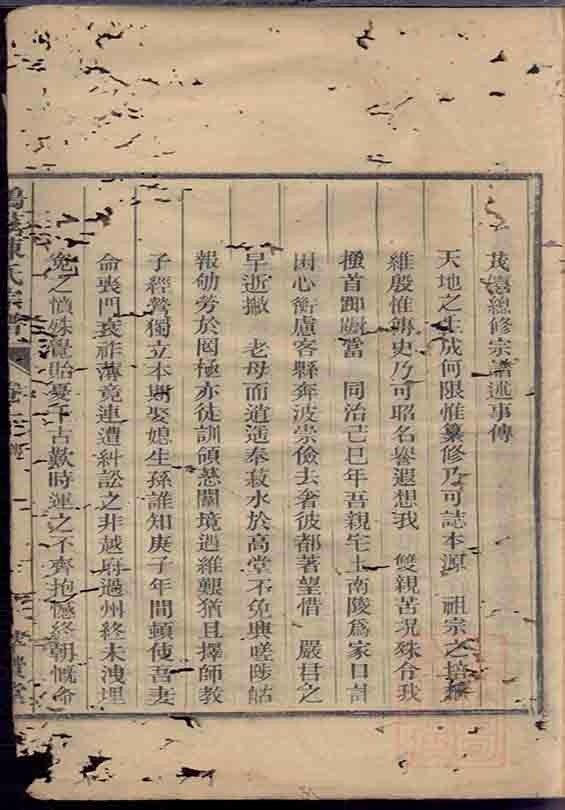 茂〓總修宗譜述事傳
天地之生成何限惟纂修乃可誌本源　祖宗之培
維殷惟傳史乃可昭名譽遐想我　雙親苦況殊令我
搔首踟躕當　同治己巳年吾親宅土南陵爲家日計
困心衡慮客縣奔波崇儉去奢彼都著望惜　嚴君之
早逝撇　老母而逍遥奉菽水於高堂不免興嗟陟岵
報劬勞於罔極亦徒訓頌愁關境遇維艱猶且擇師教
子經營獨立本期娶媳生孫誰知庚子年間頓使吾妻
命喪門衰祚薄竟連遭糾訟之非越府過州終未洩埋
寃之憤殊覺貽憂千古歎時運之不齊抱憾終朝慨命
陳氏宗譜
卷